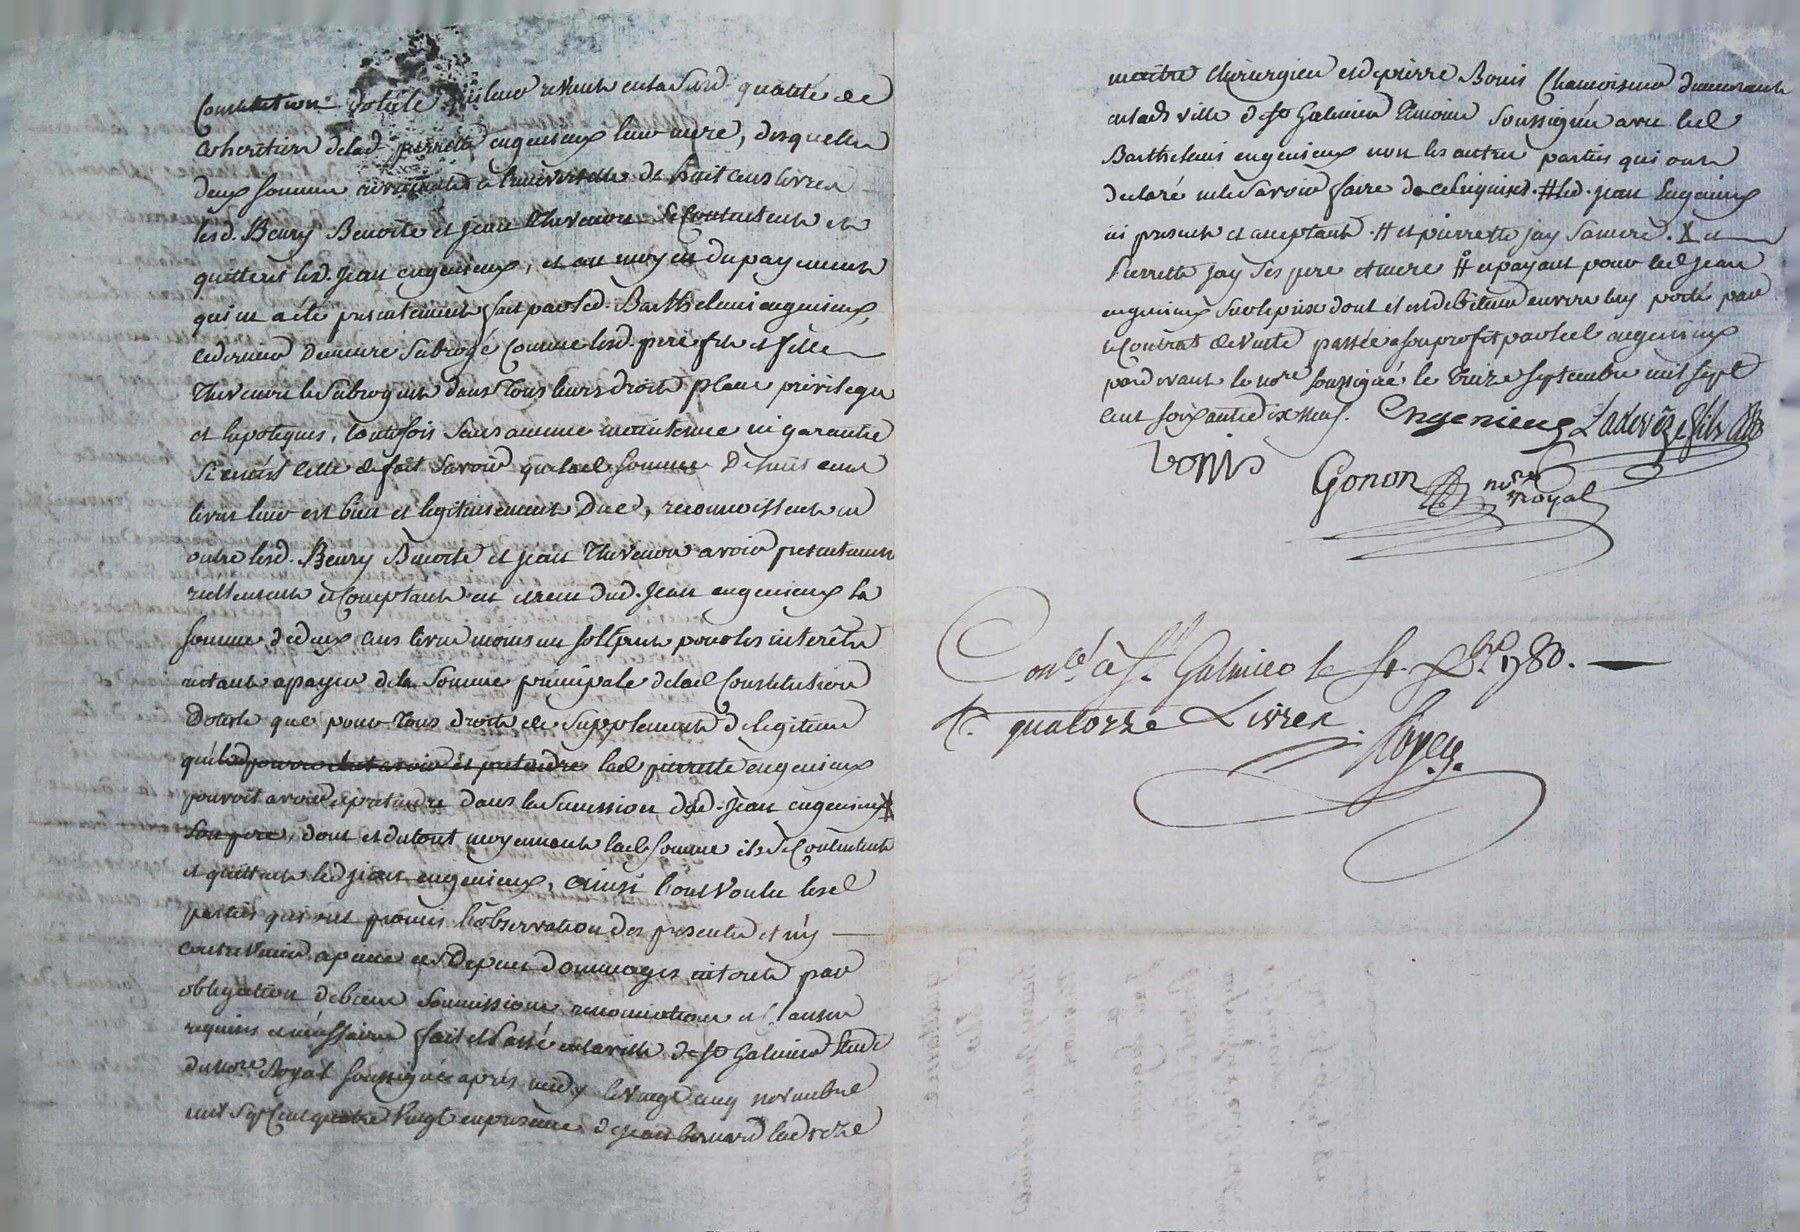 Constitution dotale qui leur revient en lasusd. qualité de
Coheritiers delad. pierrette engenieux leur mere, desquelles
deux sommes revenantes a l'universelle de huit cens livres
lesd. Beury Benoite et jean Thevenon se Contentent et
quittent led. Jean engenieux, et au moyen du payement
qui en a été presentement fait par led. Barthelemi engenieux,
cedernier demeure subrogé Comme lesd. pere fils et fille
Thevenon le subrogent dans tous leurs droits place privilege
et hipoteques, toutefois sans aucune maintenue ni garantie
si cen'est celle de fait savoir quelad. somme de huit cens
livres leur est bien et legitimement due, reconnoissent en
outre lesd. Beury Benoite et jean Thevenon avoir presentement
reellement et Comptant eu et recu dud. Jean engenieux la
somme dedeux cens livres moins un sol tant pour les interêts
restants apayer de la somme principale delad. Constitution
dotale que pour tous droits de supplement de legitime
que lad. pierrette engenieux
pouvoit avoir et pretendre dans la succession dud. Jean engenieux X
son pere, dont et dutout moyennant lad. somme ils se Contentent
et quittent led jean engenieux, ainsi l'ont voulu lesd.
parties qui ont promis l'observation des presentes et n'y
contrevenir apeine de tous depens dommages interets par
obligation debiens soumissions renonciations et clauses
requises et nécessaires fait et Passé en laville de St Galmier Etude
du nore Royal soussigné après midy le vingt cinq novembre
mil sept Cent quatre vingt en presence de jean bernard ladveze
maitre Chirurgien et de pierre Bonis Chamoiseur demeurants
en lad. ville de St Galmier temoins soussignés avec led.
Barthelemi engenieux non les autres parties qui ont
declaré ne le savoir faire de ce Enquises. # led. jean Engenieux
ici present et acceptant. # et pierrette jay sa mere. X et
Pierrette jay ses pere et mere # et payant pour led jean
engenieux sur le prix dont il est debiteur envers luy porté par
le Contrat de Vente passée a son profit par led engenieux
pardevant le nore soussigné le treize septembre mil sept
cent soixante dix neuf. Engenieux Ladevèze fils
Bonis Gonon nore royal
Conlé à St Galmier le 1780.
R. quatorze Livres.